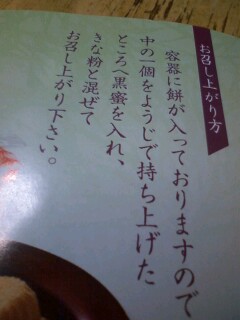 お召し上がり方
容器に餅が入っておりますので
中の一個をようじで持ち上げた
ところへ黒蜜を入れ、
きな粉と混ぜて
お召し上がり下さい。